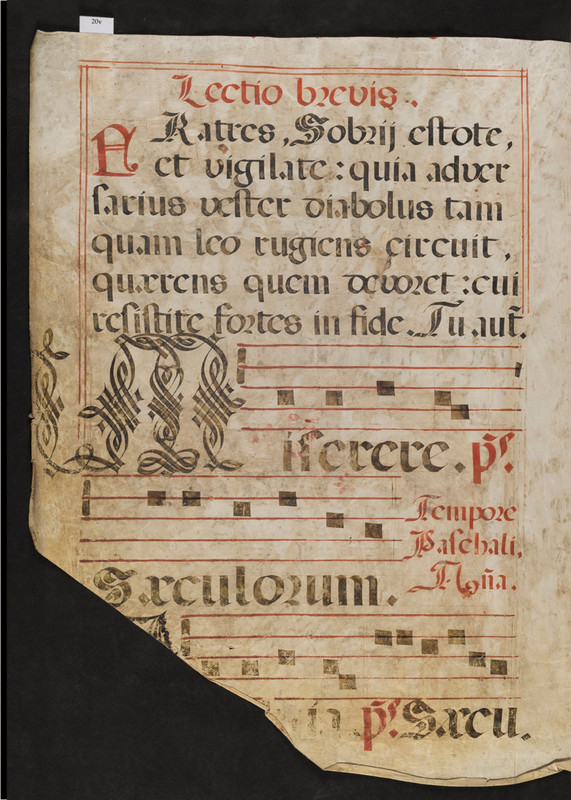 20v
Lectio brevis.
FRatres, Sobrij estote,
et vigilate: quia adver
sarius vester diabolus tam
quam leo rugiens circuit,
quærens quem devoret: cui
resistite fortes in fide. Tu aut̃.
Miserere. p̃s.
Tempore
Paschali,
Añã.
Sæculorum.
p̃s. Sæcu.